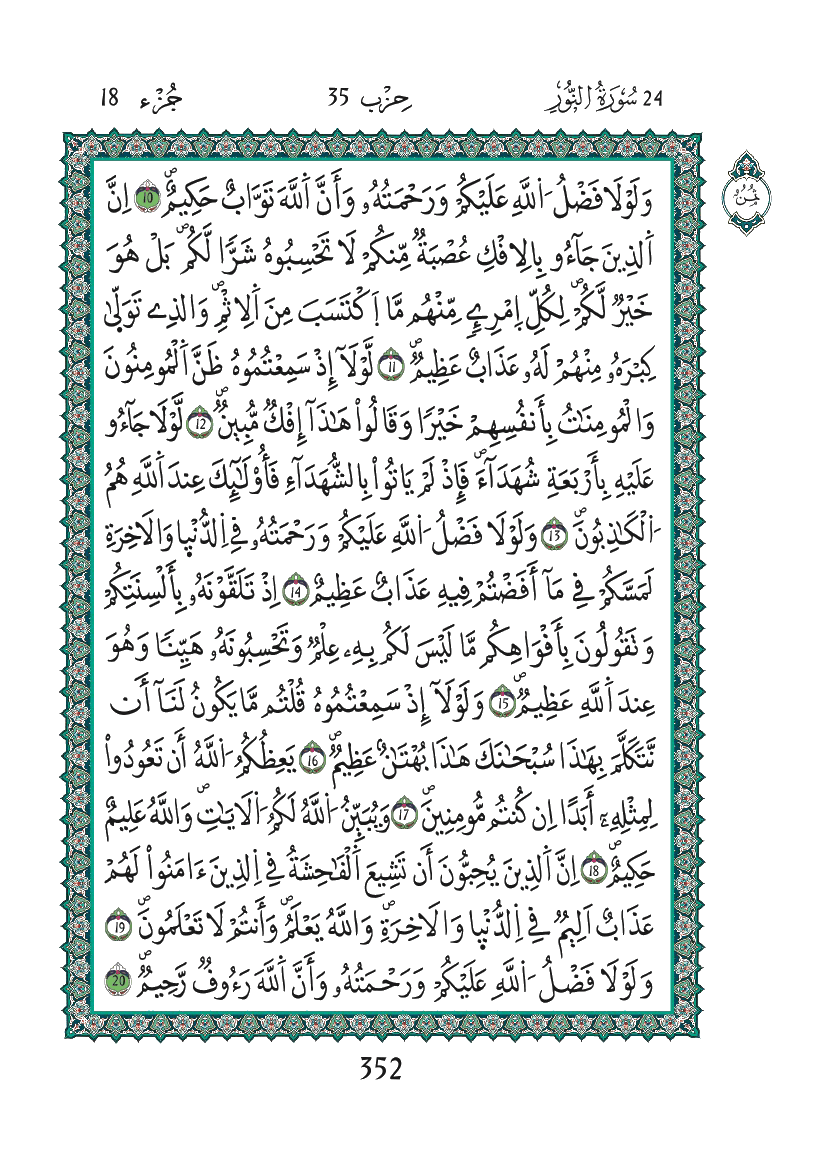 24 سُورَةُ النُّورِ
حِزْب 35
جُزْء 18
ثُمُن
وَلَوْلَا فَضْلُ اُ۬للَّهِ عَلَيْكُمْ وَرَحْمَتُهُۥ وَأَنَّ اَ۬للَّهَ تَوَّابٌ حَكِيمٌۖ 10 اِنَّ
اَ۬لذِينَ جَآءُو بِالِافْكِ عُصْبَةٌ مِّنكُمْ لَا تَحْسِبُوهُ شَرّٗا لَّكُمۖ بَلْ هُوَ
خَيْرٌ لَّكُمْۖ لِكُلِّ اِ۪مْرِےٕٖ مِّنْهُم مَّا اَ۪كْتَسَبَ مِنَ اَ۬لِاثْمِۖ وَالذِے تَوَلّ۪يٰ
كِبْرَهُۥ مِنْهُمْ لَهُۥ عَذَابٌ عَظِيمٌۖ 11 لَّوْلَآ إِذْ سَمِعْتُمُوهُ ظَنَّ اَ۬لْمُومِنُونَ
وَالْمُومِنَٰتُ بِأَنفُسِهِمْ خَيْرٗا وَقَالُواْ هَٰذَآ إِفْكٌ مُّبِينٌۖ 12 لَّوْلَا جَآءُو
عَلَيْهِ بِأَرْبَعَةِ شُهَدَآءَۖ فَإِذْ لَمْ يَاتُواْ بِالشُّهَدَآءِ فَأُوْلَٰٓئِكَ عِندَ اَ۬للَّهِ هُمُ
اُ۬لْكَٰذِبُونَۖ 13 وَلَوْلَا فَضْلُ اُ۬للَّهِ عَلَيْكُمْ وَرَحْمَتُهُۥ فِے اِ۬لدُّنْي۪ا وَالَاخِرَةِ
لَمَسَّكُمْ فِے مَآ أَفَضْتُمْ فِيهِ عَذَابٌ عَظِيمٌ 14 اِذْ تَلَقَّوْنَهُۥ بِأَلْسِنَتِكُمْ
وَتَقُولُونَ بِأَفْوَاهِكُم مَّا لَيْسَ لَكُم بِهِۦ عِلْمٌ وَتَحْسِبُونَهُۥ هَيِّنٗا وَهُوَ
عِندَ اَ۬للَّهِ عَظِيمٌۖ 15 وَلَوْلَآ إِذْ سَمِعْتُمُوهُ قُلْتُم مَّا يَكُونُ لَنَآ أَن
نَّتَكَلَّمَ بِهَٰذَا سُبْحَٰنَكَ هَٰذَا بُهْتَٰنٌ عَظِيمٌۖ 16 يَعِظُكُمُ اُ۬للَّهُ أَن تَعُودُواْ
لِمِثْلِهِۦٓ أَبَداً اِن كُنتُم مُّومِنِينَۖ 17 وَيُبَيِّنُ اُ۬للَّهُ لَكُمُ اُ۬لَايَٰتِۖ وَاللَّهُ عَلِيمٌ
حَكِيمٌۖ 18 اِنَّ اَ۬لذِينَ يُحِبُّونَ أَن تَشِيعَ اَ۬لْفَٰحِشَةُ فِے اِ۬لذِينَ ءَامَنُواْ لَهُمْ
عَذَابٌ اَلِيمٌ فِے اِ۬لدُّنْي۪ا وَالَاخِرَةِۖ وَاللَّهُ يَعْلَمُۖ وَأَنتُمْ لَا تَعْلَمُونَۖ 19
وَلَوْلَا فَضْلُ اُ۬للَّهِ عَلَيْكُمْ وَرَحْمَتُهُۥ وَأَنَّ اَ۬للَّهَ رَءُوفٌ رَّحِيمٌۖ 20
352